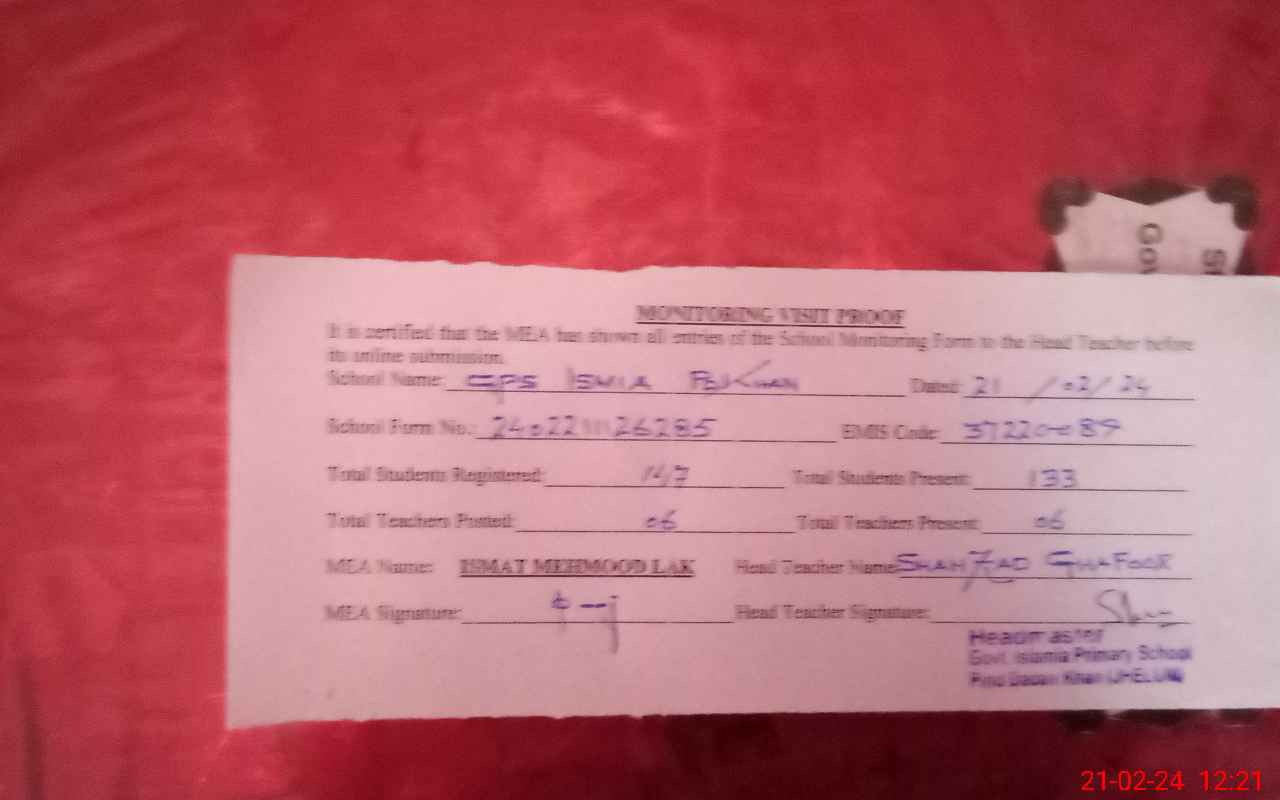 Go
S
MONITORING VISIT PROOF
It is certified that the MEA has shown all entries of the School Monitoring Form to the Head Teacher before
its online submission.
School Name: GPS ISMIA PDKHAN Dated: 21/02/24
School Form No.: 24022111126285 EMIS Code: 37220089
Total Students Registered: 147 Total Students Present: 133
Total Teachers Posted: 06 Total Teachers Present: 06
MEA Name: ISMAT MEHMOOD LAK Head Teacher Name: SHAHZAD GHAFOOR
MEA Signature: Head Teacher Signature:
Headmaster
Govt. Islamia Primary School
Pind Dadan Khan (JHELUM)
21-02-24 12:21